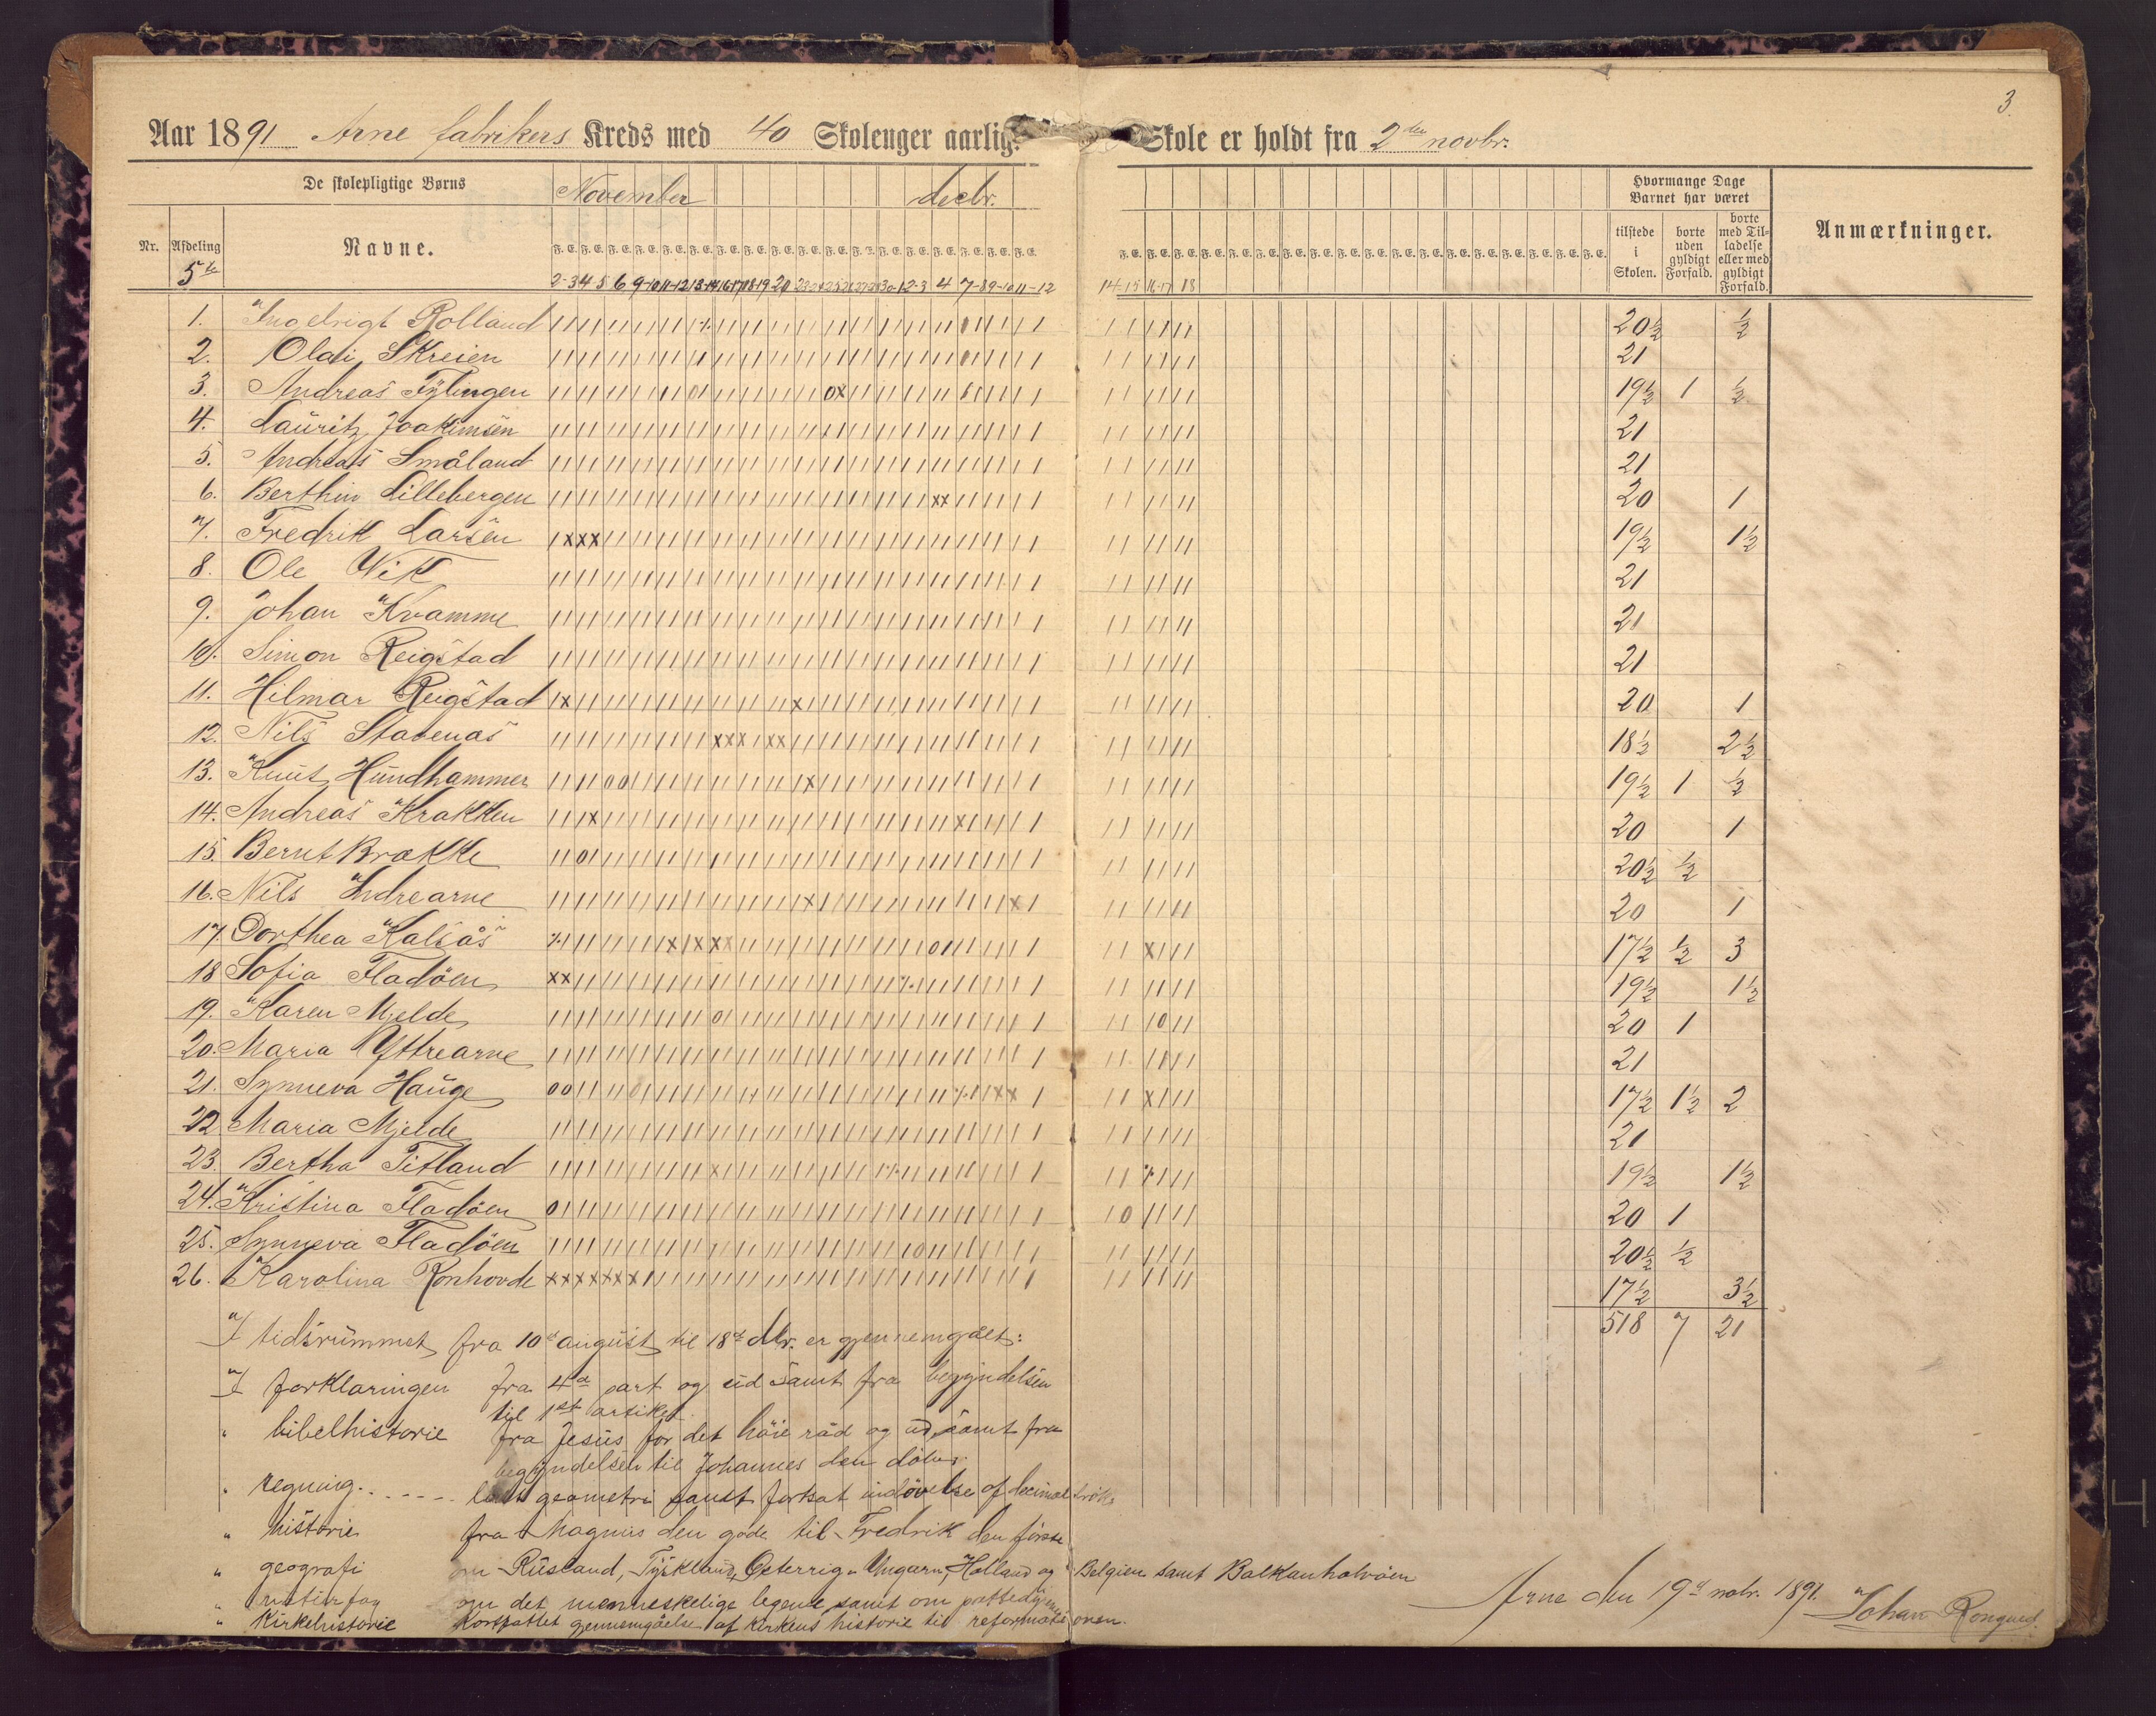 3.
Aar 1891 Arne fabrikers Kreds med 40 Skoleuger aarlig. Skole er holdt fra 2den novbr.
De skolepligtige Børns November decbr. Hvormange Dage Barnet har været
Nr. Afdeling Navne. tilstede i Skolen. borte uden gyldigt Forfald. borte med Tilladelse eller med gyldigt Forfald. Anmærkninger.
5te
1. Ingebrigt Rolland 20½ ½
2. Olai Skreien 21
3. Andreas Fylingen 19½ 1 ½
4. Lauritz Joakimsen 21
5. Andreas Småland 21
6. Berthin Lillebergen 20 1
7. Fredrik Larsen 19½ 1½
8. Ole Wik 21
9. Johan Kvamme 21
10. Simon Reigstad 21
11. Hilmar Reigstad 20 1
12. Nils Stavenas 18½ 2½
13. Knut Hundhammer 19½ 1 ½
14. Andreas Krakken 20 1
15. Bernt Brække 20½ ½
16. Nils Indrearne 20 1
17. Dorthea Kalsås 17½ ½ 3
18 Sofia Fladöen 19½ 1½
19. Karen Mjelde 20 1
20. Maria Yttrearne 21
21. Synneva Hauge 17½ 1½ 2
22 Maria Mjelde 21
23. Bertha Titland 19½ 1½
24. Kristina Fladöen 20 1
25. Synneva Fladöen 20½ ½
26. Karolina Ronhovde 17½ 3½
518 7 21
I tidsrummet fra 10de august til 18de dbr. er gjennemgået:
I forklaringen fra 4de part og ud samt fra begyndelsen
til 1ste artikel.
" bibelhistorie fra Jesus for det höie råd og ud, samt fra
begyndelsen til Johannes den döber.
" regning geometri samt fortsat indövelse af decimalbrök
" historie fra Magnus den gode til Fredrik den förste
" geografi om Rusland, Tyskland, Österrig-Ungarn, Holland og Belgien samt Balkanhalvöen
" naturfag om det menneskelige legeme samt om pattedyrene
" Kirkehistorie Kortfattet gjennemgåelse af kirkens historie til reformationen.
Arne den 19de 1891. Johan